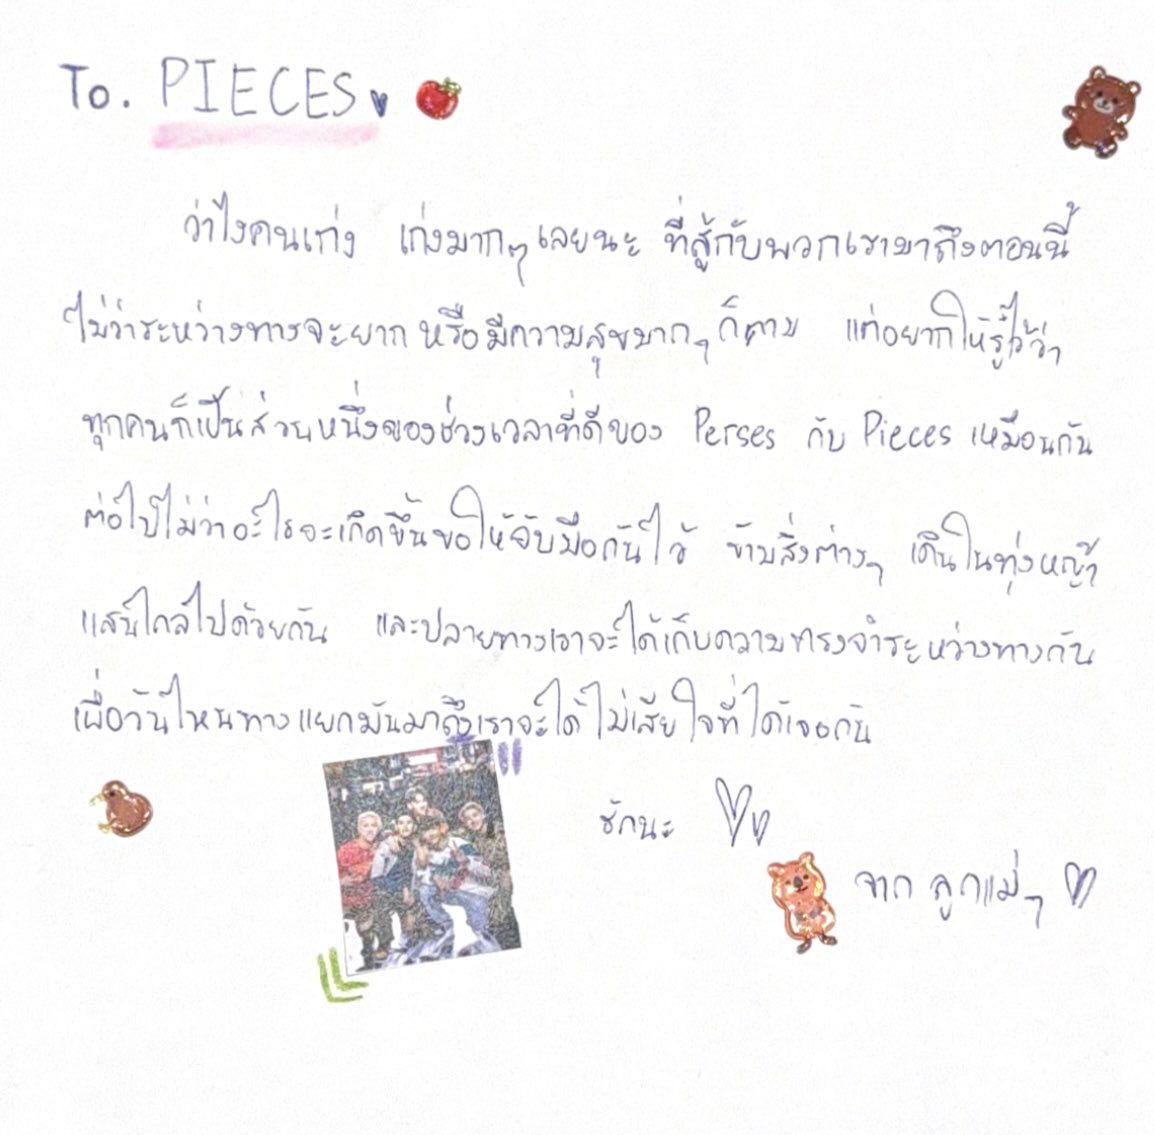 To. PIECES
ว่าไงคนเก่ง เก่งมากๆเลยนะ ที่สู้กับพวกเรามาถึงตอนนี้
ไม่ว่าระหว่างทางจะยาก หรือมีความสุขมากๆก็ตาม แต่อยากให้รู้ไว้ว่า
ทุกคนก็เป็นส่วนหนึ่งของช่วงเวลาที่ดีของ Perses กับ Pieces เหมือนกัน
ต่อไปไม่ว่าอะไรจะเกิดขึ้นขอให้จับมือกันไว้ ข้ามสิ่งต่างๆ เดินในทุ่งหญ้า
แสนไกลไปด้วยกัน และปลายทางเราจะได้เก็บความทรงจำระหว่างทางกัน
เผื่อวันไหนทางแยกมันมาถึงเราจะได้ไม่เสียใจที่ได้เจอกัน
รักนะ
จาก ลูกแม่ๆ